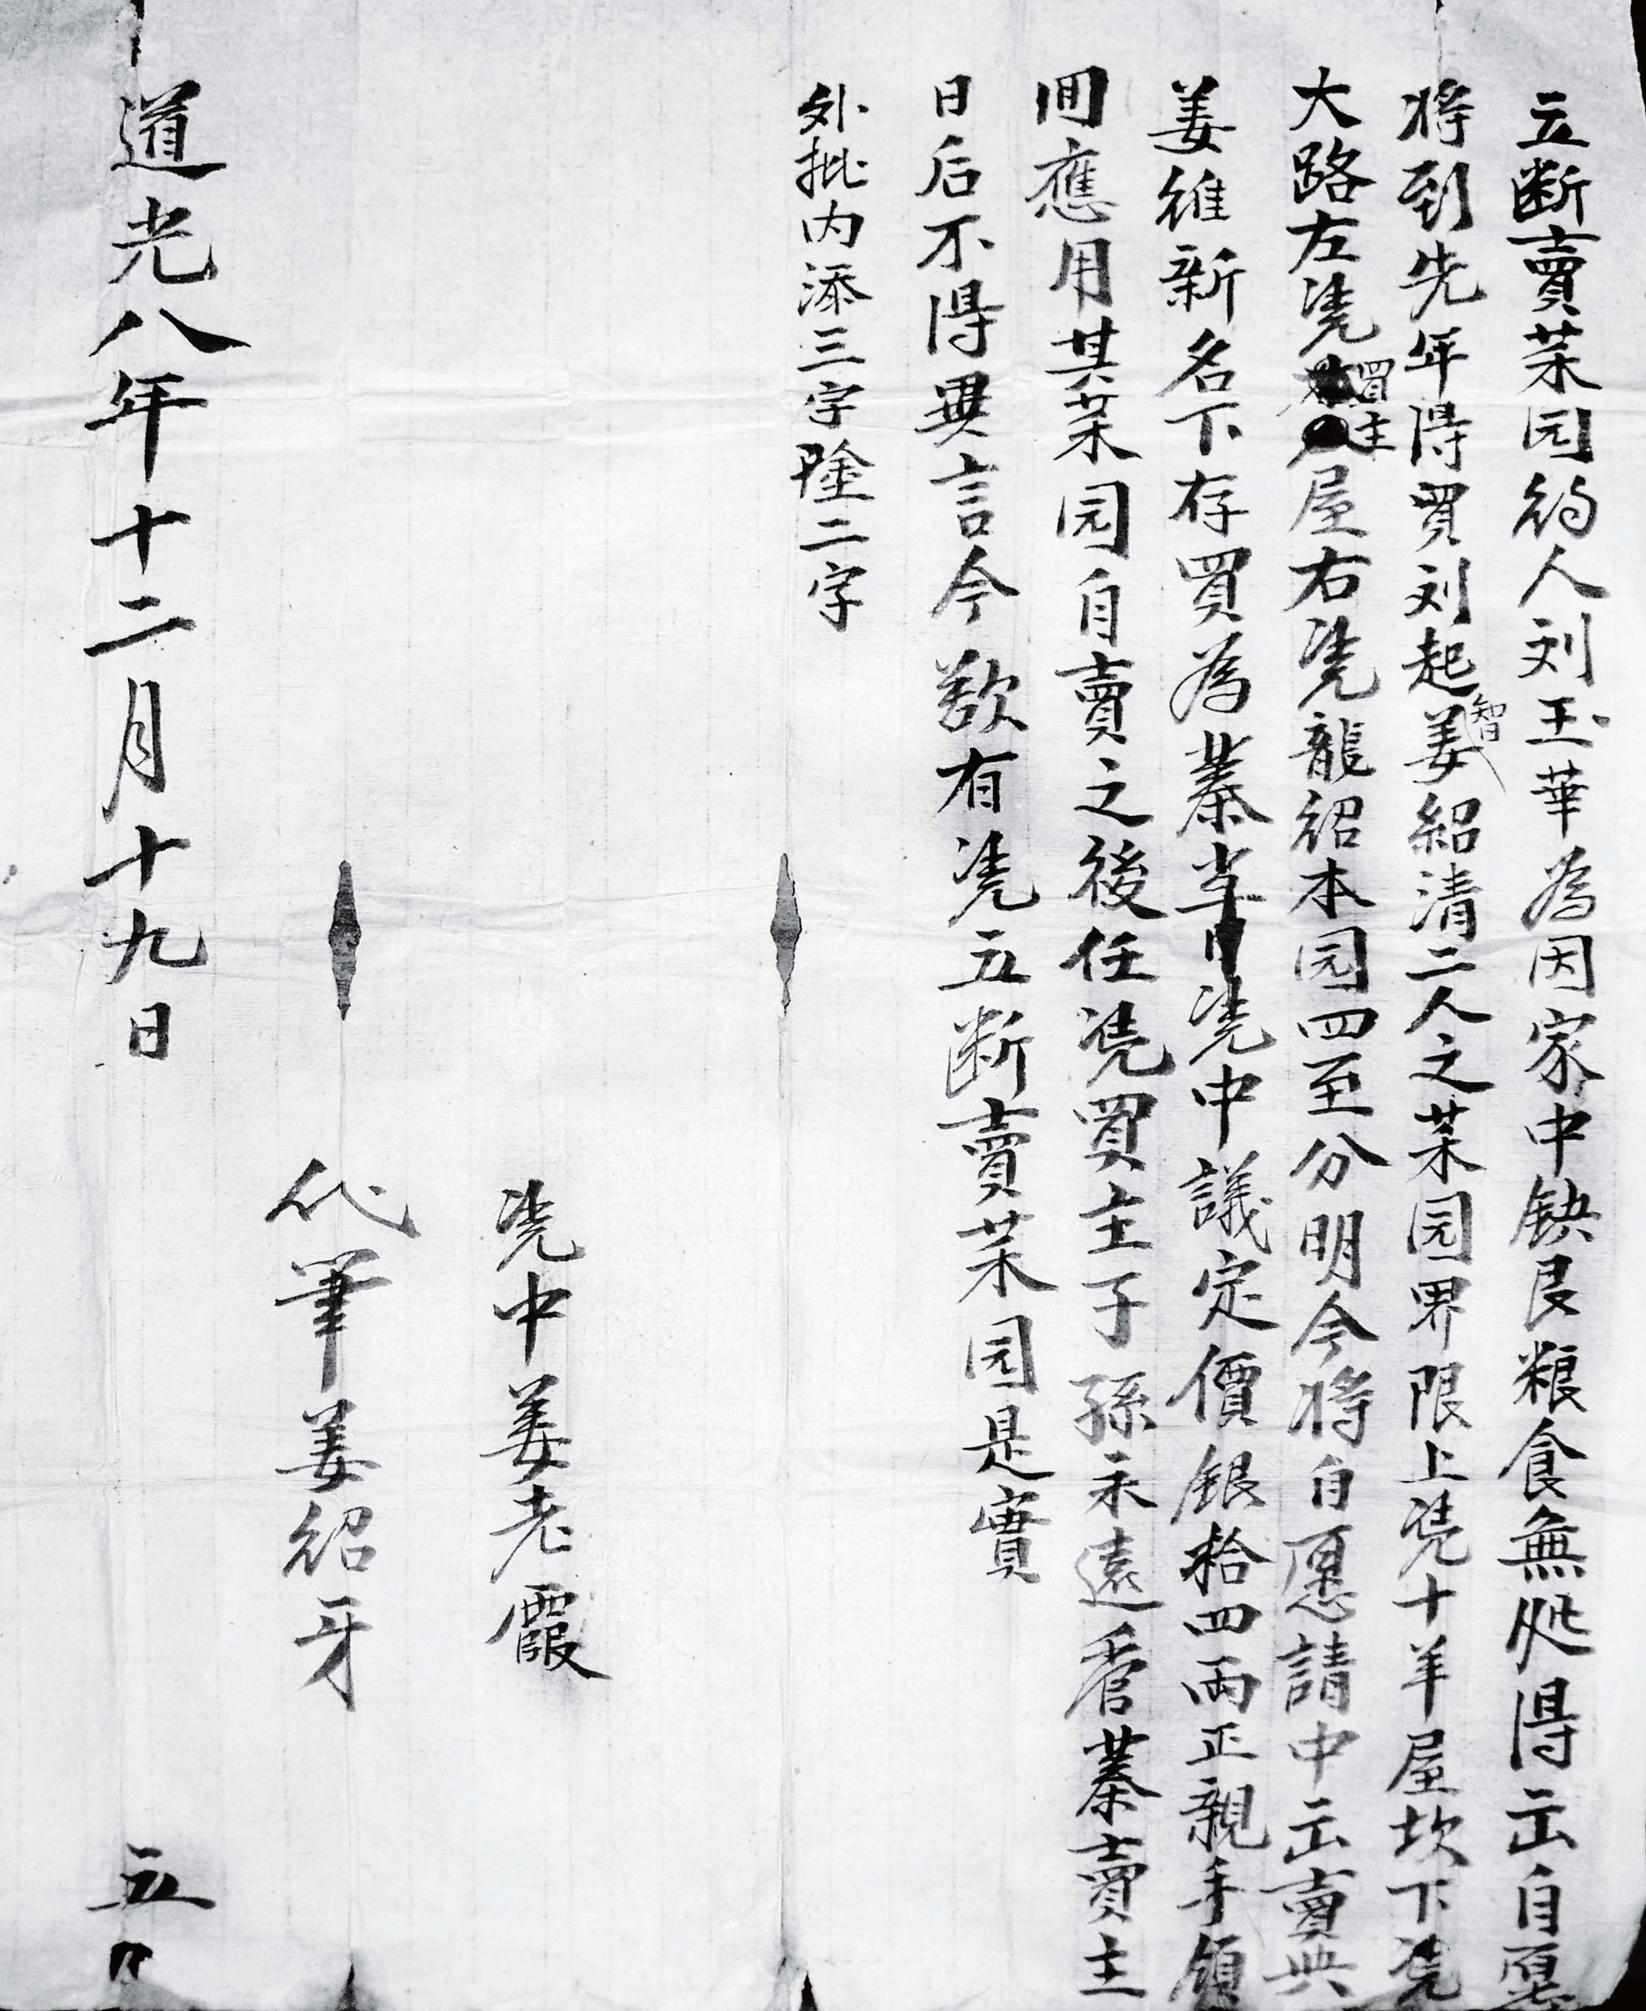 立断賣菜园約人刘玉華為因家中缺艮粮食無処得出自愿
将到先年得買刘起智姜紹清二人之菜园界限上凴十羊屋坎下凴
大路左凴買主屋右凴龍紹本园四至分明今将自愿請中出賣與
姜維新名下存買為業当日凴中議定價銀拾四両正親手領
囬應用其菜园自賣之後任凴買主子孫永遠管業賣主
日后不得異言今欲有凴立断賣菜园是實
外批内添三字除二字
凴中姜老霞
代筆姜紹牙
道光八年十二月十九日 立